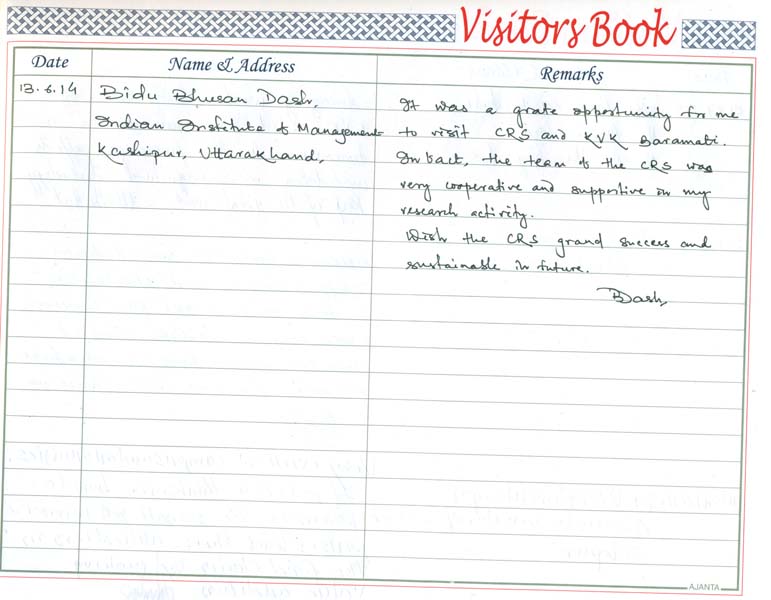 Visitors Book
Date Name & Address Remarks
13.6.14 Bidu Bhusan Dash,
Indian Institute of Management
Kashipur, Uttarakhand,
It was a grate opportunity for me
to visit CRS and KVK Baramati.
In fact, the team of the CRS was
very cooperative and supportive in my
research activity.
Wish the CRS grand success and
sustainable in future.
BDash,
AJANTA